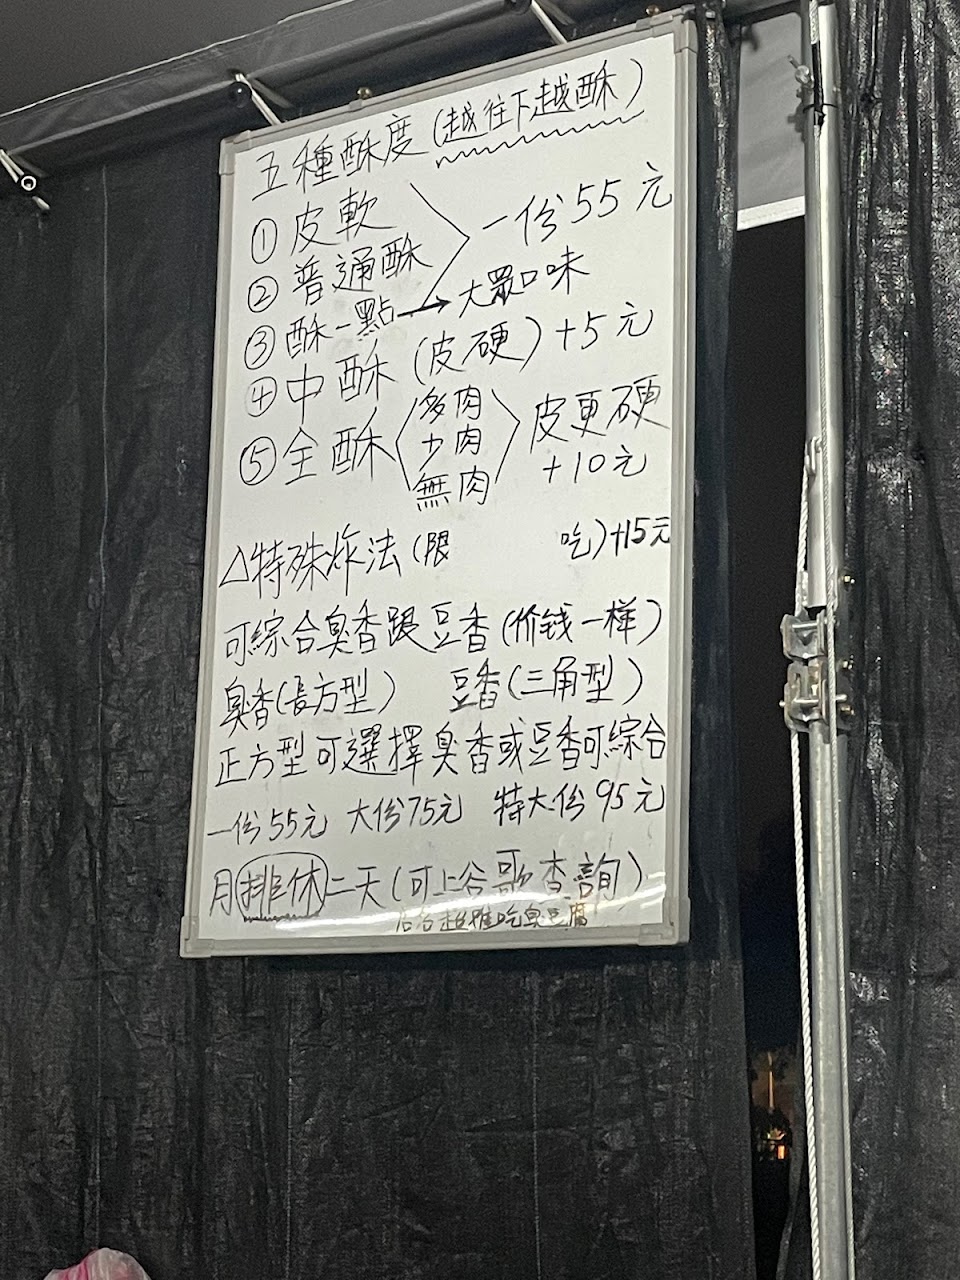 五種酥度(越往下越酥)
①皮軟
②普通酥 一份55元
③酥一點→大眾口味
④中酥(皮硬)+5元
⑤全酥 多肉 少肉 無肉 皮更硬 +10元
△特殊炸法(限 吃)+15元
可綜合臭香跟豆香(价钱一样)
臭香(長方型) 豆香(三角型)
正方型可選擇臭香或豆香可綜合
一份55元 大份75元 特大份95元
月排休二天(可上谷歌查詢)
店名超推吃臭豆腐